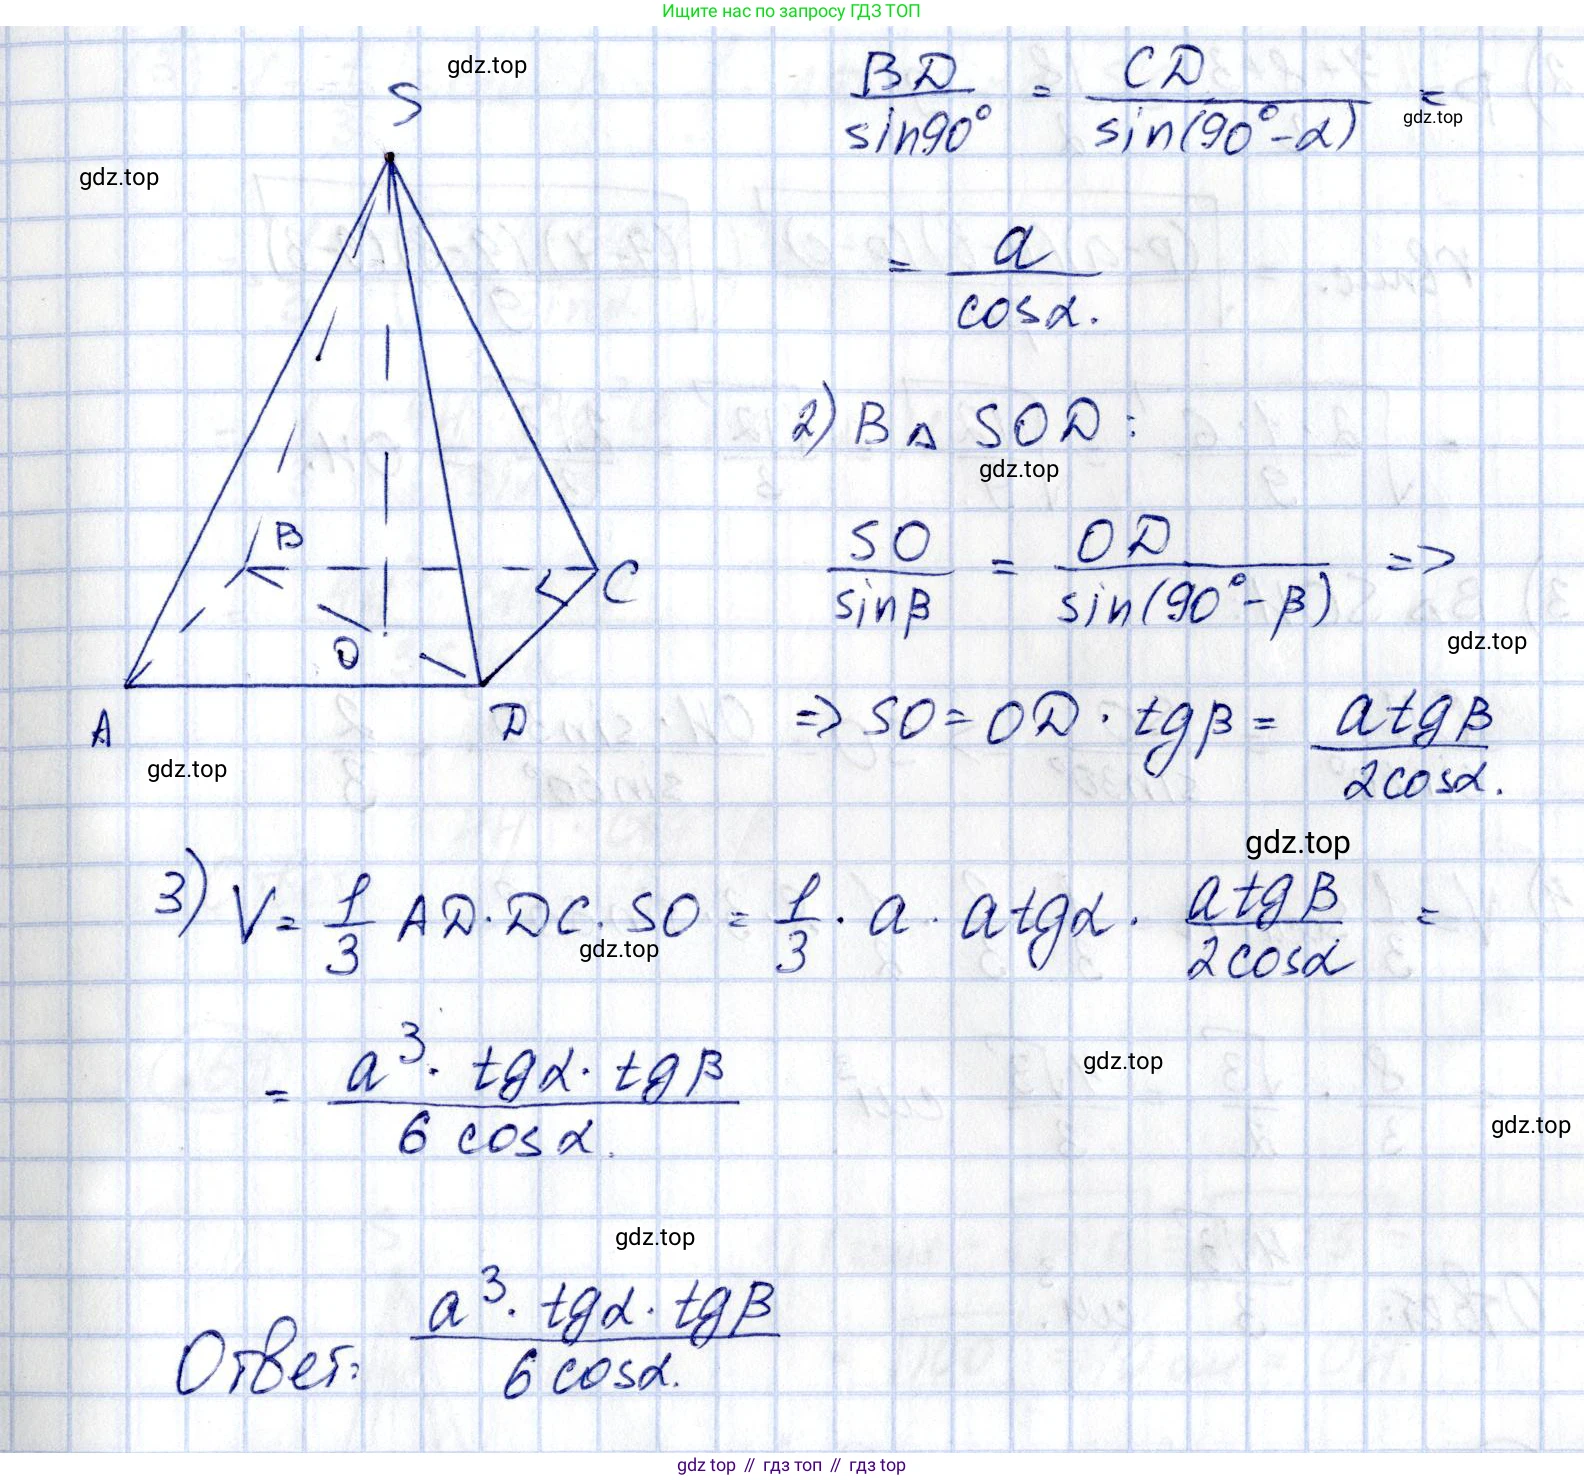 Ищите нас по запросу ГДЗ ТОП
gdz.top
S
gdz.top
BD / sin90° = CD / sin(90°-α) =
gdz.top
= a / cosα.
2) В △ SOD:
gdz.top
SO / sinβ = OD / sin(90°-β) =>
gdz.top
B
C
O
A
D
gdz.top
=> SO = OD · tgβ = atgβ / 2cosα.
gdz.top
3) V = 1/3 AD · DC · SO = 1/3 · a · atgα · atgβ / 2cosα =
gdz.top
= a³ · tgα · tgβ / 6 cosα.
gdz.top
gdz.top
gdz.top
Ответ: a³ · tgα · tgβ / 6 cosα.
gdz.top // гдз топ // гдз top